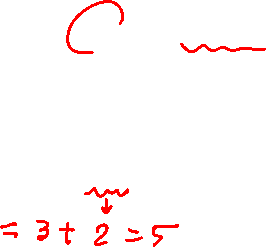 = 3 + 2 = 5